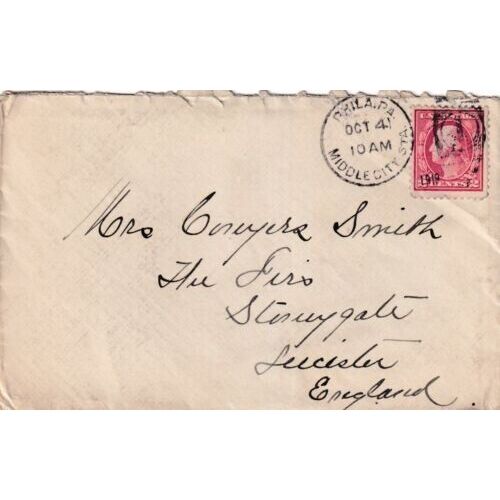 PHILA, PA.
OCT 4
10 AM
MIDDLE CITY STA.
1919
CENTS 2
Mrs Conyers Smith
The Firs
Stoneygate
Leicister
England.